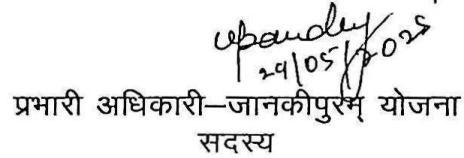 upandey
29/05/2025
प्रभारी अधिकारी–जानकीपुरम् योजना
सदस्य